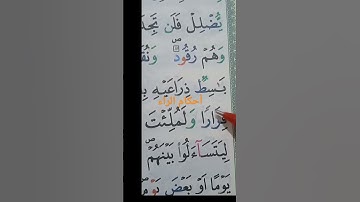 يُّضْلِلْ فَلَن تَجِدَ
وَهُمْ رُقُودٌ ۖ وَنُقَ
بَٰسِطٌ ذِرَاعَيْهِ بِ
أحكام الراء
فِرَارًا وَلَمُلِئْتَ
لِيَتَسَآءَلُوا۟ بَيْنَهُمْ ۚ
يَوْمًا أَوْ بَعْضَ يَوْمٍ